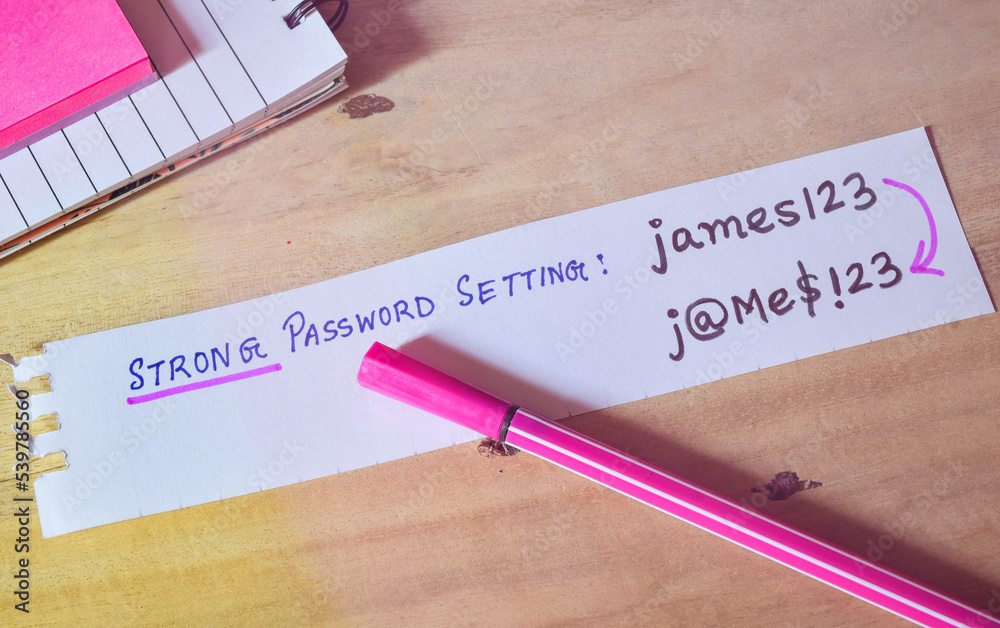 STRONG PASSWORD SETTING:
james123
j@Me$!23
Adobe Stock | #539785560